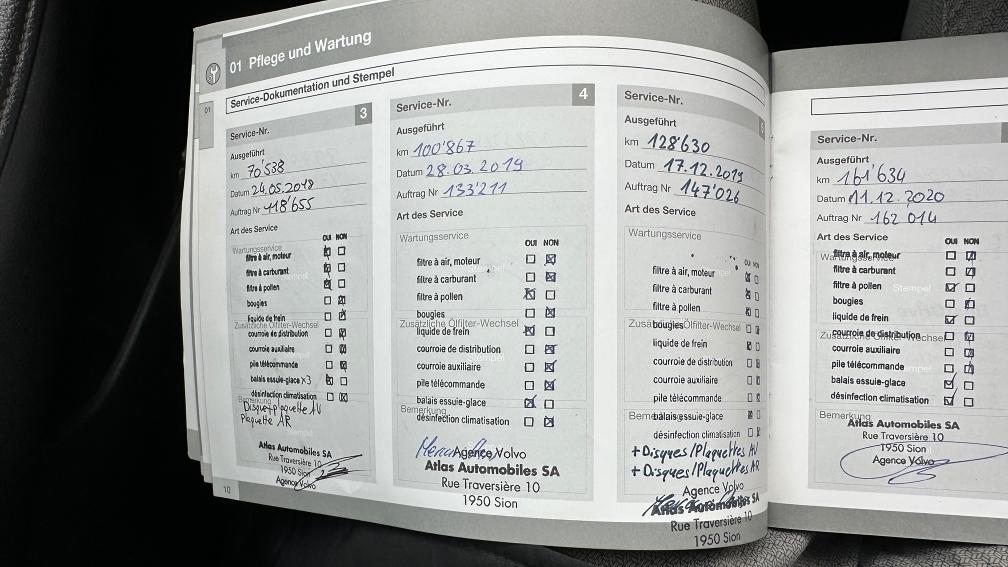 01 Pflege und Wartung
01
Service-Dokumentation und Stempel
Service-Nr. 3
Ausgeführt
km 70'538
Datum 24.05.2018
Auftrag Nr 118'655
Art des Service
Wartungsservice
OUI NON
filtre à air, moteur
filtre à carburant
filtre à pollen
bougies
liquide de frein
Zusätzliche Ölfilter-Wechsel
courroie de distribution
courroie auxiliaire
pile télécommande
balais essuie-glace x3
désinfection climatisation
Bemerkung
Disque+plaquette AV
Plaquette AR
Atlas Automobiles SA
Rue Traversière 10
1950 Sion
Agence Volvo
10
Service-Nr. 4
Ausgeführt
km 100'867
Datum 28.03.2019
Auftrag Nr 133'211
Art des Service
Wartungsservice
OUI NON
filtre à air, moteur
filtre à carburant
filtre à pollen
bougies
Zusätzliche Ölfilter-Wechsel
liquide de frein
courroie de distribution
courroie auxiliaire
pile télécommande
balais essuie-glace
Bemerkung
désinfection climatisation
Agence Volvo
Atlas Automobiles SA
Rue Traversière 10
1950 Sion
Service-Nr.
Ausgeführt
km 128'630
Datum 17.12.2019
Auftrag Nr 147'026
Art des Service
Wartungsservice
OUI NON
filtre à air, moteur
filtre à carburant
filtre à pollen
Zusätzliche Ölfilter-Wechsel
bougies
liquide de frein
courroie de distribution
courroie auxiliaire
pile télécommande
Bemerkung
balais essuie-glace
désinfection climatisation
+Disques/Plaquettes AV
+Disques/Plaquettes AR
Agence Volvo
Atlas Automobiles SA
Rue Traversière 10
1950 Sion
Service-Nr.
Ausgeführt
km 161'634
Datum 11.12.2020
Auftrag Nr 162 014
Art des Service
OUI NON
Wartungsservice
filtre à air, moteur
filtre à carburant
filtre à pollen
Stempel
bougies
liquide de frein
Zusätzliche Ölfilter-Wechsel
courroie de distribution
courroie auxiliaire
pile télécommande
balais essuie-glace
désinfection climatisation
Bemerkung
Atlas Automobiles SA
Rue Traversière 10
1950 Sion
Agence Volvo